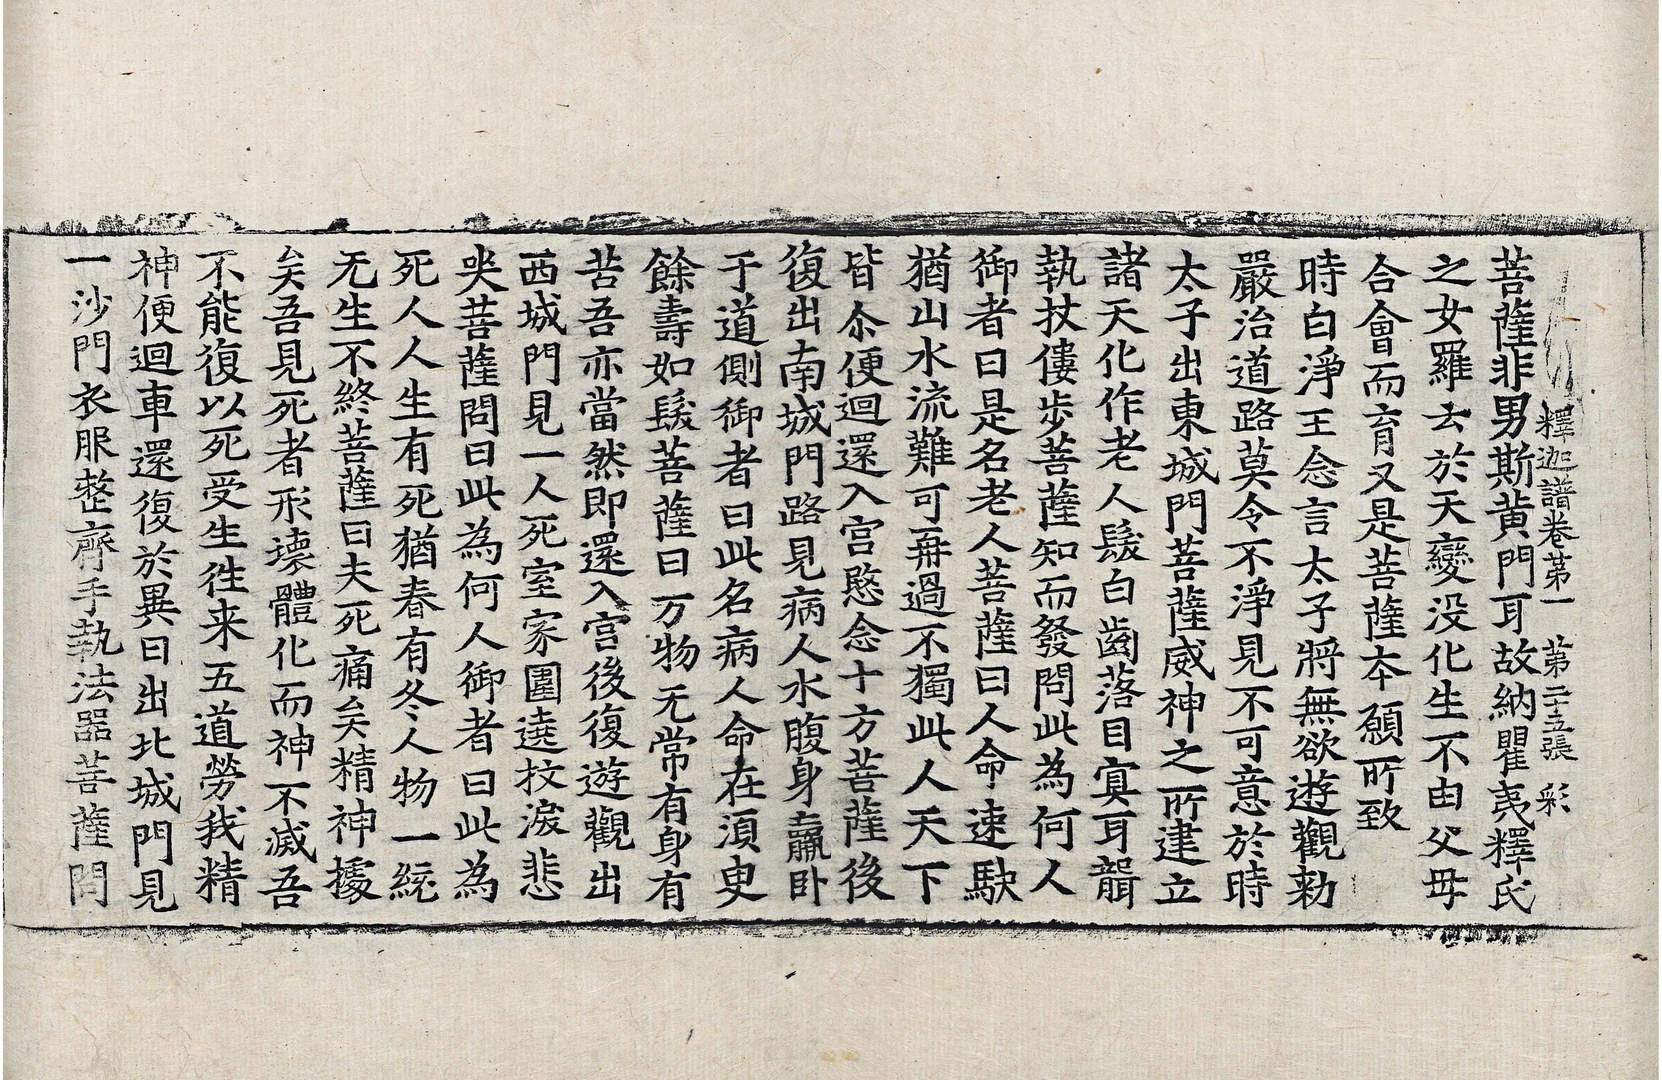 釋迦譜卷第一 第二十五張 彩
菩薩非男斯黄門耳故納瞿夷釋氏
之女羅云於天變没化生不由父母
合會而育又是菩薩本願所致
時白淨王念言太子將無欲遊觀勑
嚴治道路莫令不淨見不可意於時
太子出東城門菩薩威神之所建立
諸天化作老人髮白齒落目冥耳聾
執杖僂步菩薩知而發問此為何人
御者曰是名老人菩薩曰人命速駛
猶山水流難可再過不獨此人天下
皆尒便迴還入宫愍念十方菩薩後
復出南城門路見病人水腹身羸卧
于道側御者曰此名病人命在湏臾
餘壽如髮菩薩曰万物无常有身有
苦吾亦當然即還入宫後復遊觀出
西城門見一人死室家圍遶扠淚悲
哭菩薩問曰此為何人御者曰此為
死人人生有死猶春有冬人物一統
无生不終菩薩曰夫死痛矣精神據
矣吾見死者形壊體化而神不滅吾
不能復以死受生徃来五道勞我精
神便迴車還復於異日出北城門見
一沙門衣服整齊手執法器菩薩問